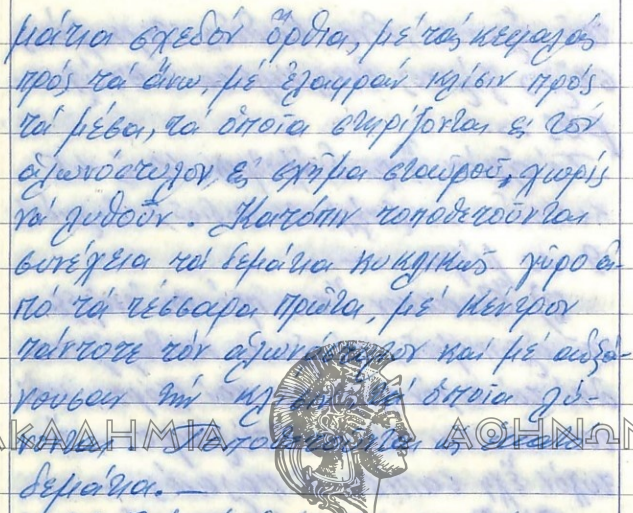 μάτια σχεδόν ὄρθια, μέ τάς κεφαλάς
πρός τά ἄνω, μέ ἐλαφράν κλίσιν πρός
τά μέσα, τά ὁποῖα στηρίζονται εἰς τόν
ἁλωνόστυλον εἰς σχῆμα σταυροῦ, χωρίς
νά λυθοῦν. Κατόπιν τοποθετοῦνται
συνέχεια τά δεμάτια κυκλικῶς γύρο ἀ-
πό τά τέσσαρα πρῶτα, μέ κέντρον
πάντοτε τόν ἁλωνόστυλον καί μέ αὐξά-
νουσαν τήν κλίσιν, τά ὁποῖα λύ-
νονται. Τοποθετοῦνται
δεμάτια.—
ΑΚΑΔΗΜΙΑ ΑΘΗΝΩΝ